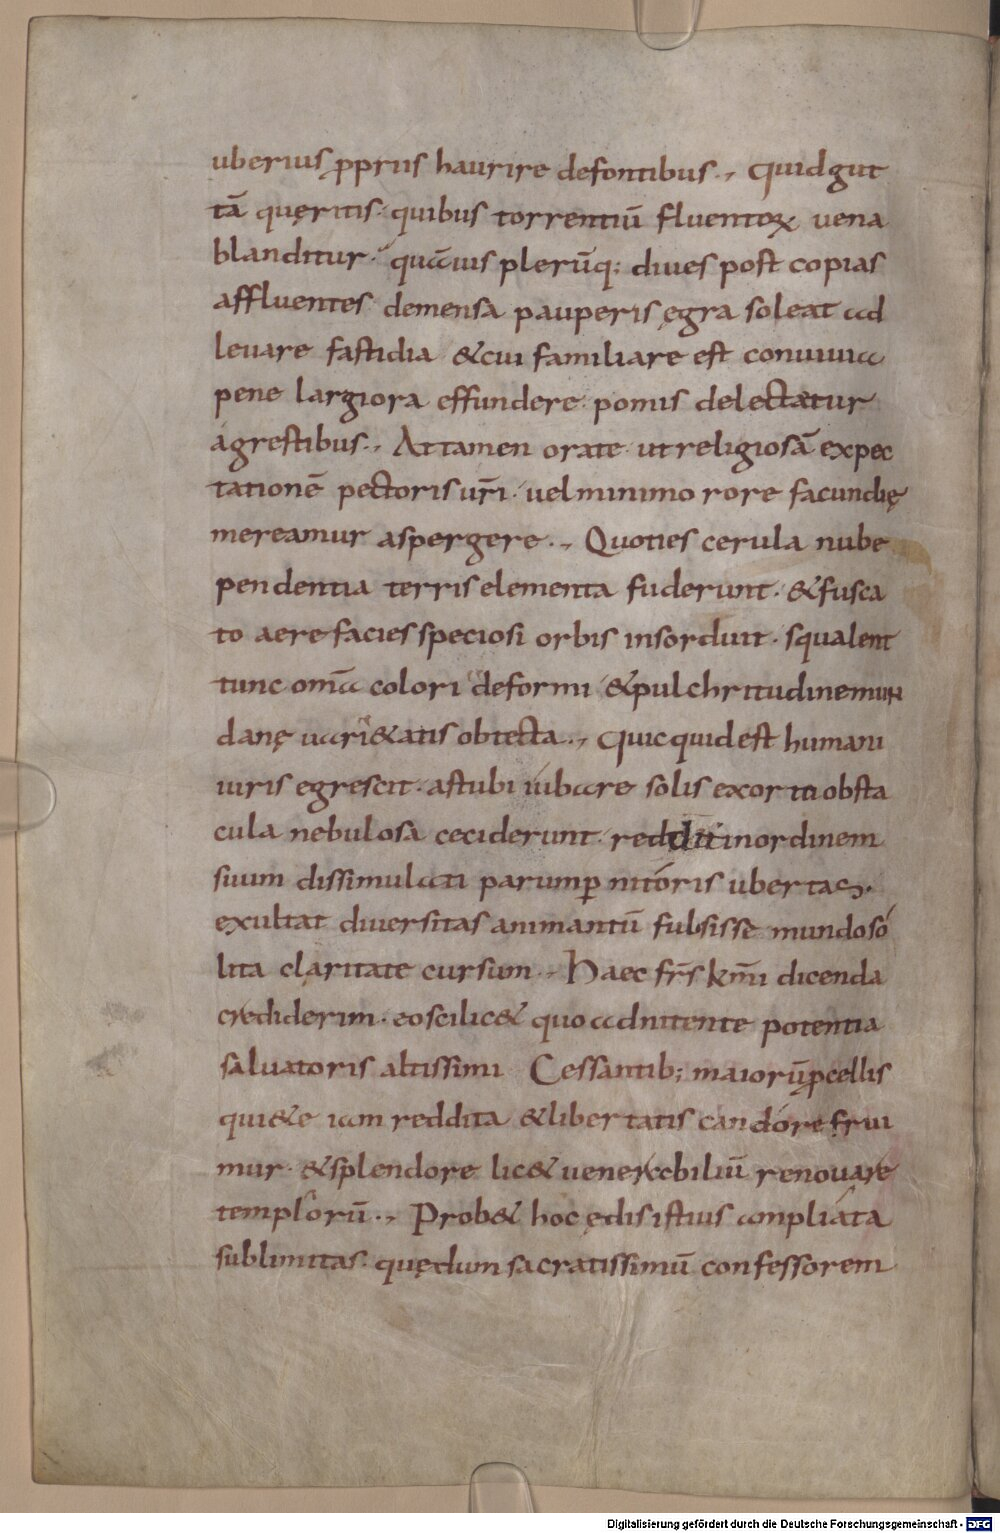 uberius ꝓpriis haurire defontibus., Quid gut
tā quęritis. quibus torrentiū fluentoꝝ vena
blanditur. quāuis plerūq; diues post copias
affluentes demensa pauperis ęgra soleat ad
leuare fastidia &cui familiare est conuiuia
pene largiora effundere. pomis delectatur
agrestibus., Attamen orate. ut religiosā expec
tationē pectoris ur̄i. uel minimo rore facundię
mereamur aspergere., Quoties cerula nube
pendentia terris elementa fuderunt. &fusca
to aere facies speciosi orbis insorduit. squalent
tunc om̄a colori deformi &pulchritudinemun
danę uari&atis obtecta., Quicquid est humani
iuris egrescit. ast ubi iubare solis exorti obsta
cula nebulosa ceciderunt. reddit inordinem
suum dissimulati parumꝑ nitoris ubertas.
exultat diuersitas animantū fulsisse mundo só
lita claritate cursum., Haec fr̄s km̄i dicenda
crediderim. eo scilic& quo adnitente potentia
saluatoris altissimi Cessantib; maiorū ꝓcellis
qui&e iam reddita &libertatis candore frui
mur. &splendore lic& uenerabiliū renouare
templorū., Prob& hoc ędis istius ampliata
sublimitas. quędum sacratissimū confessorem
Digitalisierung gefördert durch die Deutsche Forschungsgemeinschaft - DFG